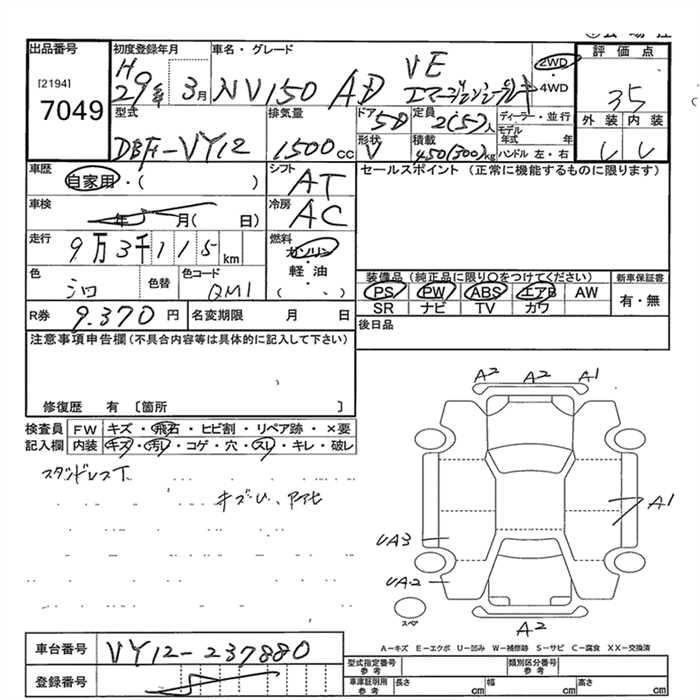 出品番号
[2194]
7049
初度登録年月
H29年 3月
車名・グレード
NV150 AD VE
エマージェンシーブレーキ
2WD
・
4WD
評価点
3.5
型式
DBF-VY12
排気量
1500cc
ドア
5D
形状
V
定員
2(5)人
積載
450(300)kg
ディーラー・並行
モデル年式 年
ハンドル 左・右
外装 内装
車歴
自家用・( )
シフト
AT
車検
年 月( 日)
冷房
AC
走行
9万3千115km
燃料
ガソリン
・
軽油
( 、 )
色
シロ
色替
色コード
QM1
R券
9.370円
名変期限 月 日
セールスポイント (正常に機能するものに限ります)
装備品 (純正品に限り○をつけてください)
新車保証書
PS PW ABS エアB AW
SR ナビ TV カワ
有・無
後日品
注意事項申告欄(不具合内容等は具体的に記入して下さい)
修復歴 有 〔箇所 〕
検査員記入欄
FW キズ・飛石・ヒビ割・リペア跡・×要
内装 キズ・汚レ・コゲ・穴・スレ・キレ・破レ
スタッドレスT
A2 A2 A1
A1
UA3
UA2
スペア
A2
A-キズ E-エクボ U-凹み W-補修跡 S-サビ C-腐食 XX-交換済
車台番号
VY12-237880
登録番号
型式指定番号
参考
類別区分番号
参考
車庫証明用
参考
長さ cm 幅 cm 高さ cm